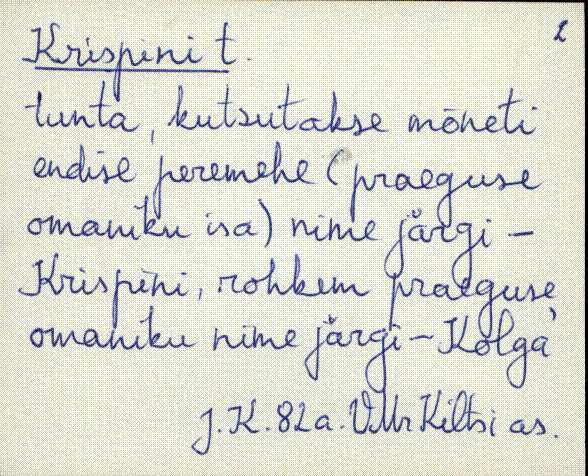 2
Krispini t.
tunta, kutsutakse mõneti
endise peremehe (praeguse
omaniku isa) nime järgi –
Krispini, rohkem praeguse
omaniku nime järgi – Kolga
J.K. 82a. VMr Kiltsi as.